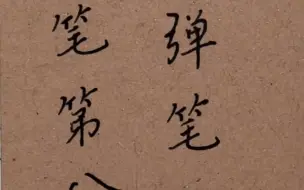 弹笔
笔第八